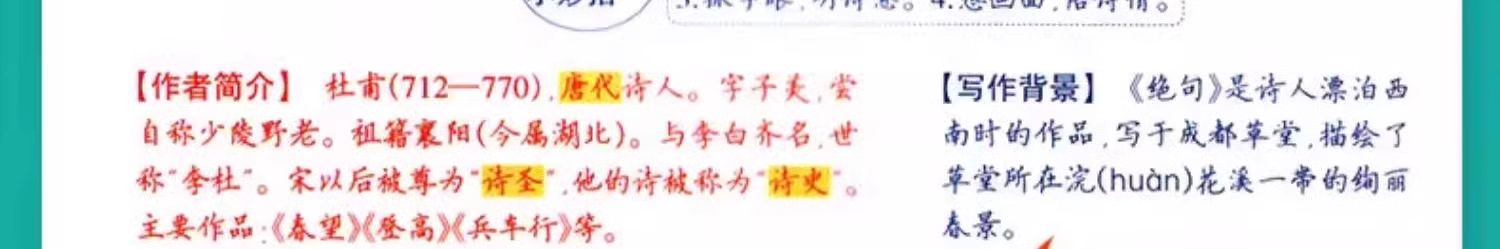 3.抓字眼,明诗意。4.想画面,悟诗情。
【作者简介】 杜甫(712—770),唐代诗人。字子美,尝
自称少陵野老。祖籍襄阳(今属湖北)。与李白齐名,世
称“李杜”。宋以后被尊为“诗圣”,他的诗被称为“诗史”。
主要作品:《春望》《登高》《兵车行》等。
【写作背景】 《绝句》是诗人漂泊西
南时的作品,写于成都草堂,描绘了
草堂所在浣(huàn)花溪一带的绚丽
春景。